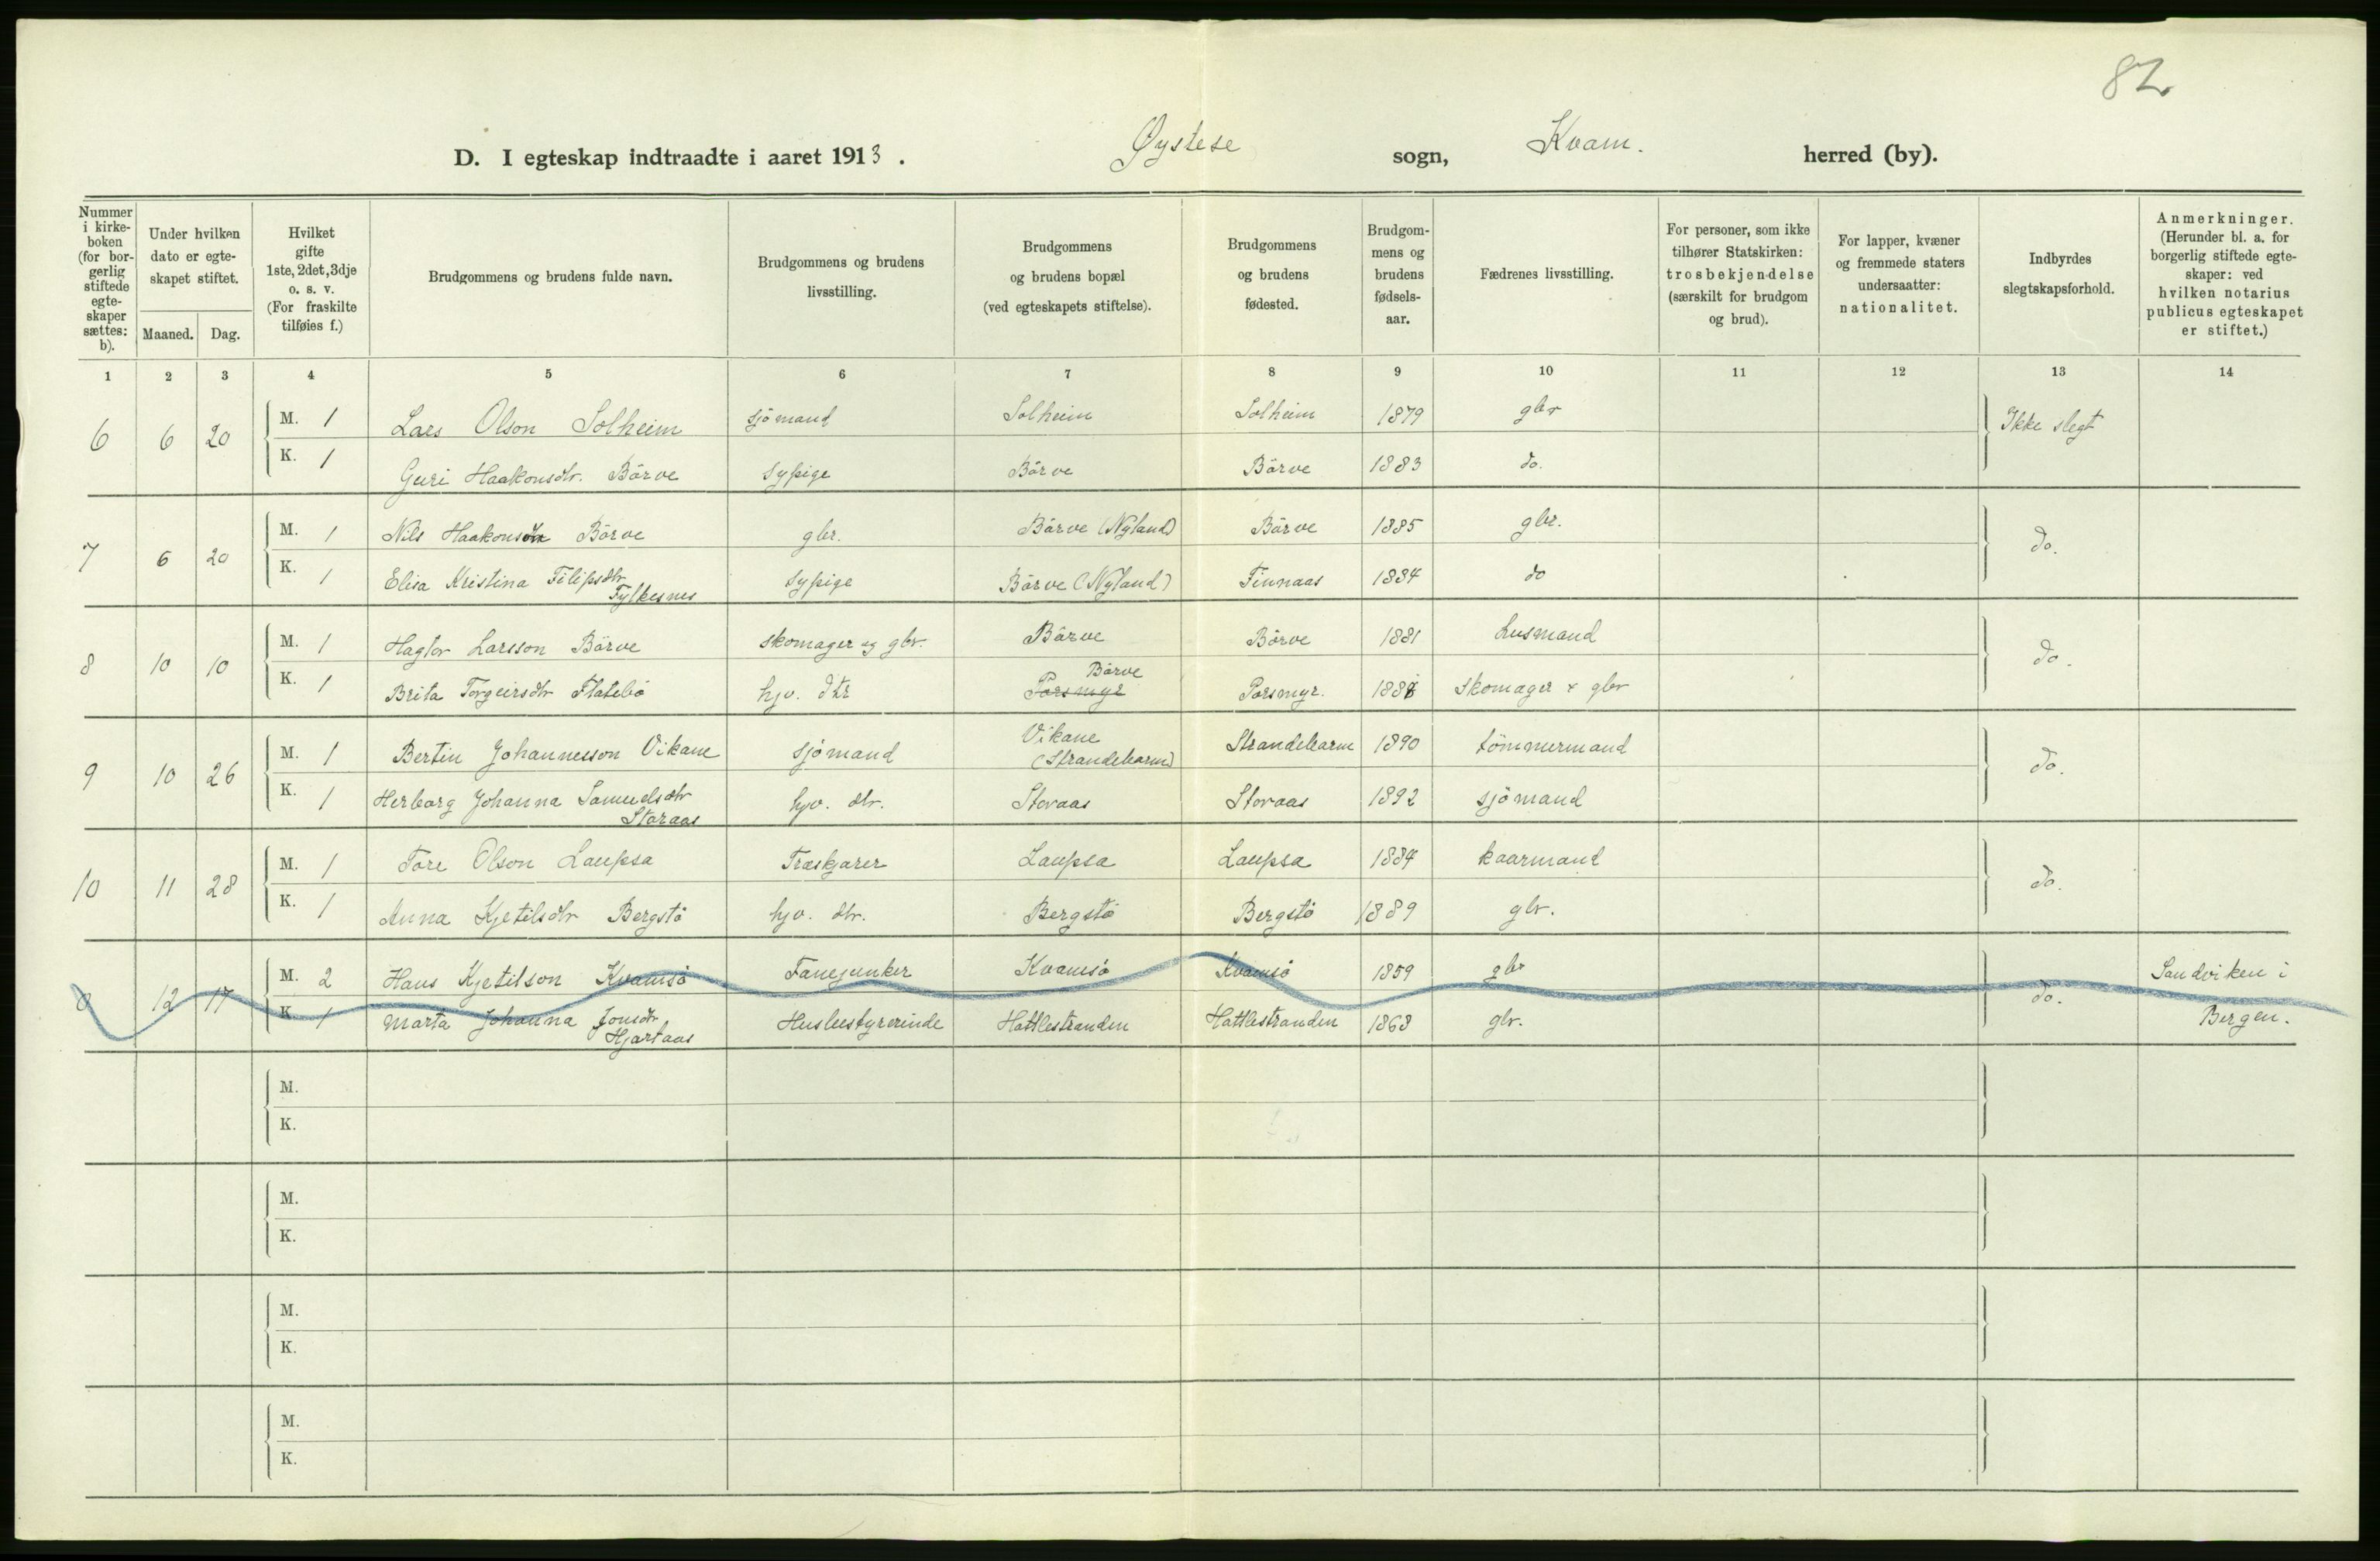 82.
D. I egteskap indtraadte i aaret 1913. Øystese sogn, Kvam. herred (by).
Nummer i kirke-boken (for bor-gerlig stiftede egte-skaper sættes: b).
Under hvilken dato er egte-skapet stiftet.
Maaned. Dag.
Hvilket gifte 1ste, 2det, 3dje o. s. v. (For fraskilte tilføies f.)
Brudgommens og brudens fulde navn.
Brudgommens og brudens livsstilling.
Brudgommens og brudens bopæl (ved egteskapets stiftelse).
Brudgommens og brudens fødested.
Brudgom-mens og brudens fødsels-aar.
Fædrenes livsstilling.
For personer, som ikke tilhører Statskirken: trosbekjendelse (særskilt for brudgom og brud).
For lapper, kvæner og fremmede staters undersaatter: nationalitet.
Indbyrdes slegtskapsforhold.
Anmerkninger. (Herunder bl. a. for borgerlig stiftede egte-skaper: ved hvilken notarius publicus egteskapet er stiftet.)
1 2 3 4 5 6 7 8 9 10 11 12 13 14
6 6 20 M. 1 Lars Olson Solheim sjömand Solheim Solheim 1879 gbr Ikke slegt
K. 1 Guri Haakonsdtr. Börve sypige Börve Börve 1883 do.
7 6 20 M. 1 Nils Haakonson Börve gbr. Börve (Nyland) Börve 1885 gbr. do.
K. 1 Elisa Kristina Filipsdtr Fylkesnes sypige Börve (Nyland) Finnaas 1884 do
8 10 10 M. 1 Hagtor Larsson Börve skomager og gbr. Börve Börve 1881 husmand do.
K. 1 Brita Torgeirsdtr Flatebö hjv. dtr Porsmyr Börve Porsmyr. 1888 skomager & gbr
9 10 26 M. 1 Bertin Johannesson Vikane sjömand Vikane (Strandebarm) Strandebarm 1890 tömmermand do.
K. 1 Herborg Johanna Samuelsdtr Storaas hjv. dtr. Storaas Storaas 1892 sjömand
10 11 28 M. 1 Tore Olson Laupsa Træskjærer Laupsa Laupsa 1884 kaarmand do.
K. 1 Anna Kjetilsdtr Bergstö hjv. dtr. Bergstö Bergstö 1889 gbr.
0 12 17 M. 2 Hans Kjetilson Kvamsö Fanejunker Kvamsö Kvamsö 1859 gbr do. Sandviken i
K. 1 Marta Johanna Jonsdtr Hjartaas Husbestyrerinde Hattlestranden Hattlestranden 1868 gbr. Bergen.
M.
K.
M.
K.
M.
K.
M.
K.